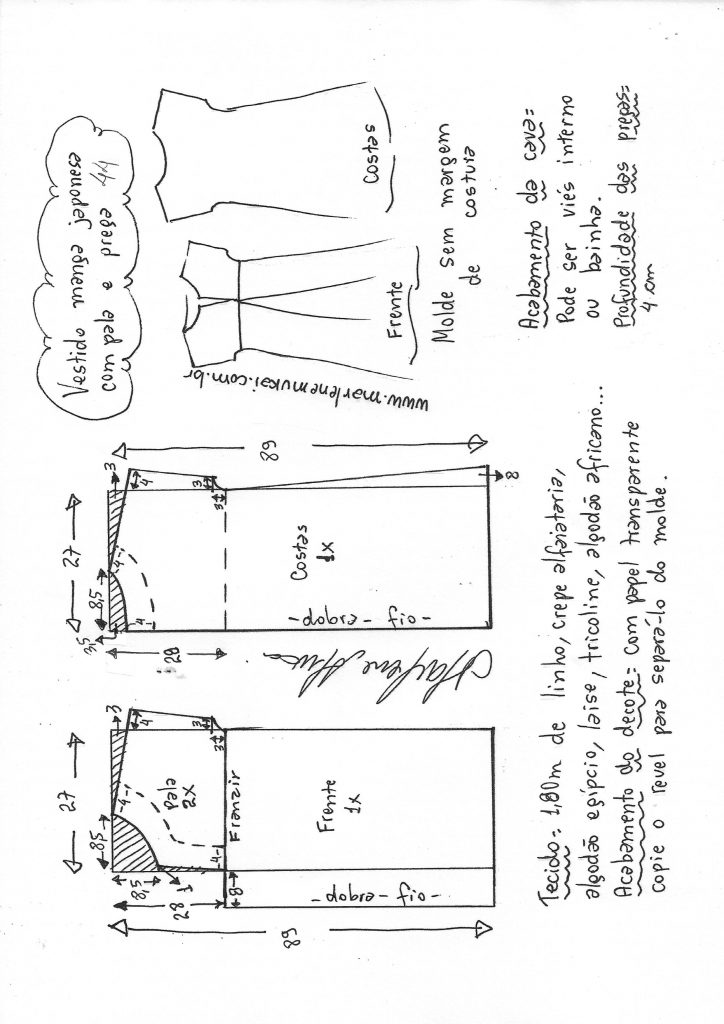 Vestido manga japonesa
com pala e prega 44
27
8,5
3
4
4
8,5
1
28
Pala
2X
4
3
3
Franzir
8
Frente
1X
fio - dobra -
89
27
8,5
3
3,5
4
4
4
28
3
3
Costas
1X
fio - dobra -
8
89
Marlene Mukai
www.marlenemukai.com.br
Frente
Costas
Molde sem margem
de costura
Tecido= 1,80m de linho, crepe alfaiataria,
algodão egípcio, laise, tricoline, algodão africano...
Acabamento do decote= Com papel transparente
copie o revel para separá-lo do molde.
Acabamento da cava=
Pode ser viés interno
ou bainha.
Profundidade das pregas=
4 cm